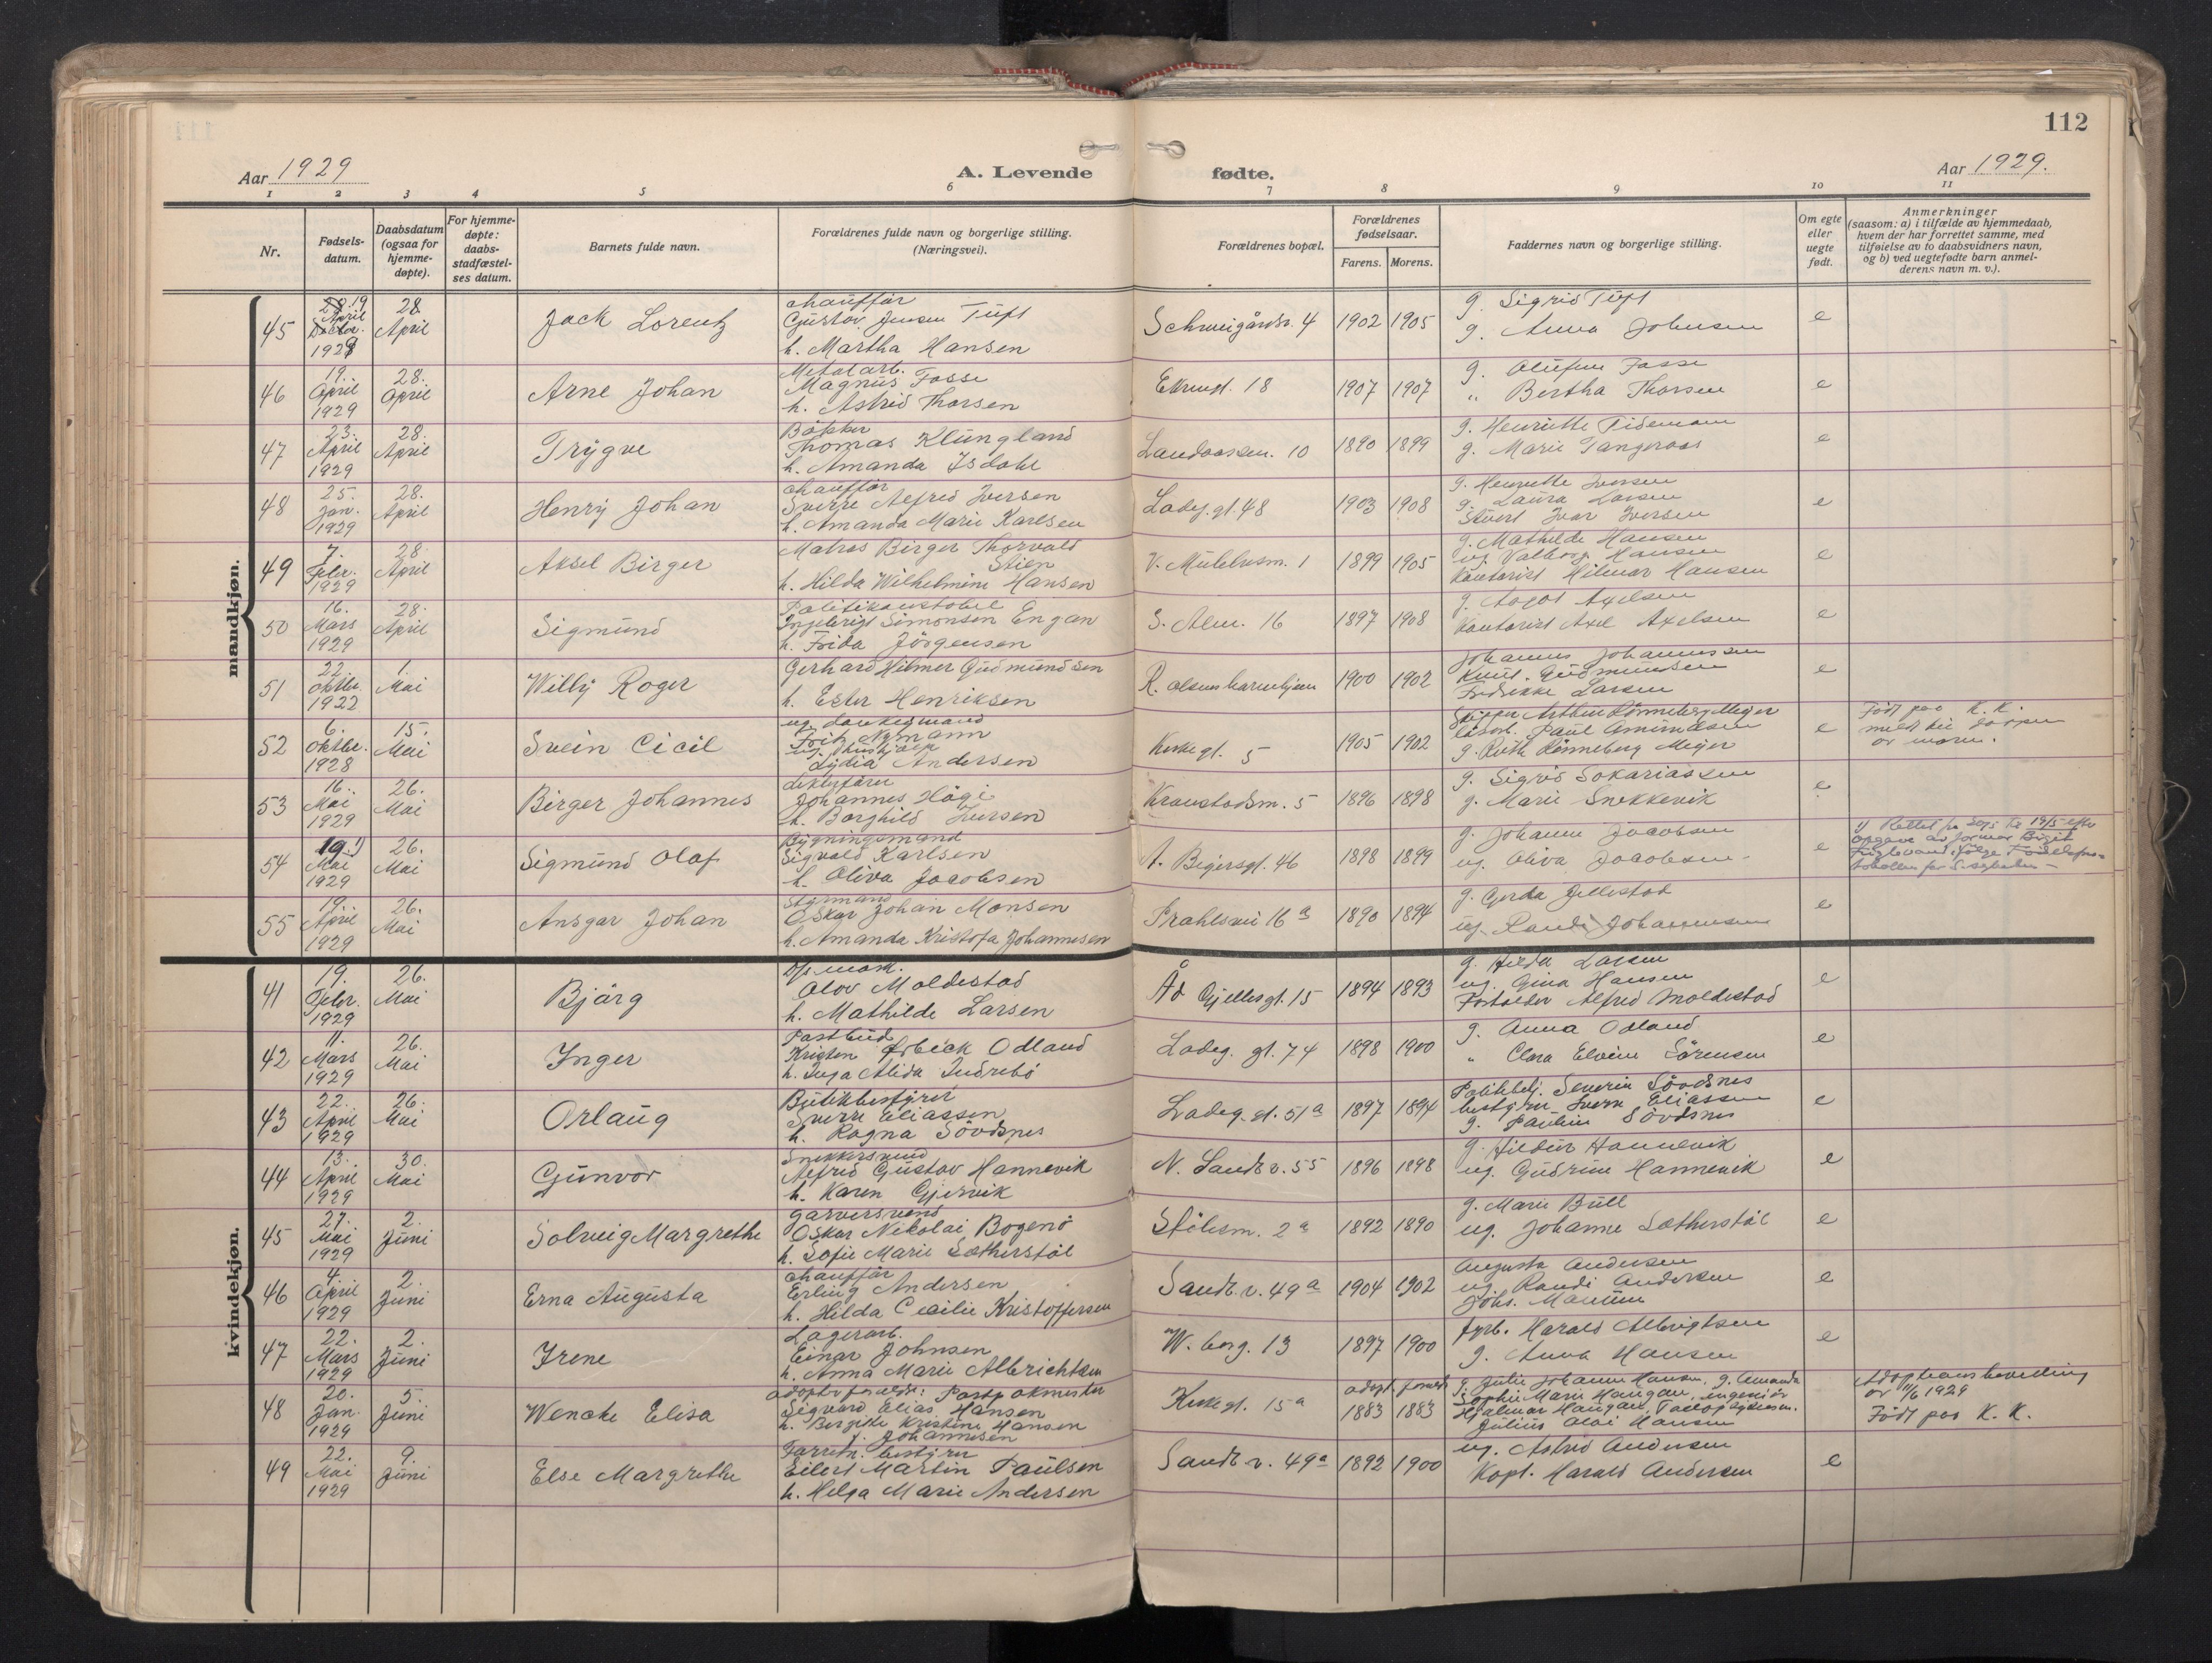 112
Aar 1929
A. Levende fødte.
Aar 1929.
1 2 3 4 5 6 7 8 9 10 11
Nr.
Fødsels-
datum.
Daabsdatum
(ogsaa for
hjemme-
døpte).
For hjemme-
døpte:
daabs-
stadfæstel-
ses datum.
Barnets fulde navn.
Forældrenes fulde navn og borgerlige stilling.
(Næringsvei).
Forældrenes bopæl.
Forældrenes
fødselsaar.
Farens. Morens.
Faddernes navn og borgerlige stilling.
Om egte
eller
uegte
født.
Anmerkninger
(saasom: a) i tilfælde av hjemmedaab,
hvem der har forrettet samme, med
tilføielse av to daabsvidners navn,
og b) ved uegtefødte barn anmel-
derens navn m. v.).
mandkjøn.
45
19
April
1929
28
April
Jack Lorentz
chauffør
Gustav Jensen Tuft
h. Martha Hansen
Schweigårdsv. 4
1902 1905
g. Sigrid Tuft
g. Anna Johnsen
e
46
19.
April
1929
28.
April
Arne Johan
Metalarb.
Magnus Fosse
h. Astrid Thorsen
18
1907 1907
g. Fosse
" Bertha Thorsen
e
47
23.
April
1929
28.
April
Trygve
Bøkker
Thomas Klungland
h. Amanda Isdahl
Landaasen. 10
1890 1899
g. Henriette Tidemann
g. Marie Tangeraas
e
48
25.
Jan.
1929
28.
April
Henry Johan
chauffør
Sverre Alfred Iversen
h. Amanda Marie Karlsen
Ladeg. gt. 48
1903 1908
g. Henriette Iversen
g. Laura Larsen
Stuert Ivar Iversen
e
49
7.
Febr.
1929
28
April
Aksel Birger
Matros Birger Thorvald
Stien
h. Hilda Wilhelmine Hansen
V. Mühlensm. 1
1899 1905
g. Mathilde Hansen
ug. Valborg Hansen
Kontorist Hilmar Hansen
e
50
16.
Mars
1929
28.
April
Sigmund
Politikonstabel
Ingebrigt Simonsen Engan
h. Frida Jörgensen
S. Alm. 16
1897 1908
g. Aagot Axelsen
Kontorist Axel Axelsen
e
51
22.
Oktbr.
1922
1.
Mai
Willy Roger
Gerhard Hilmer Gudmundsen
h. Ester Henriksen
R. Olsens barnehjem
1900 1902
Johannes Johannessen
Knut Gudmundsen
Fredrikke Larsen
e
52
6.
Oktbr.
1928
15.
Mai
Svein Cicil
Fritz Nymann
Lydia Andersen
Kirkegt. 5
1905 1902
Skipper Arthur Rönneberg Meyer
Paul Amundsen
g. Ruth Rönneberg Meyer
e
Födt paa K. K.
meldt til
av moren.
53
16.
Mai
1929
26.
Mai
Birger Johannes
Johannes Högi
h. Borghild Iversen
Kronstadsm. 5
1896 1898
g. Sigrid Sakariassen
g. Marie Snekkevik
e
54
19. 1)
Mai
1929
26.
Mai
Sigmund Olaf
Bygningsmand
Sigvald Karlsen
h. Oliva Jacobsen
A. Bejersgt. 46
1898 1899
g. Johanne Jacobsen
ug. Oliva Jacobsen
e
1) Rettet fra 20/5 til 19/5 efter
opgave av jormor Birgit
55
19.
April
1929
26.
Mai
Ansgar Johan
Styrmand
Oskar Johan Monsen
h. Amanda Kristofa Johannesen
Prahlsvei 16 a
1890 1894
g. Gerda Jellestad
ug. Randi Johannesen
e
kvindekjøn.
41
19.
Febr.
1929
26.
Mai
Bjørg
Olav Moldestad
h. Mathilde Larsen
Åd Gjellesgt. 15
1894 1893
g. Hilda Larsen
ug. Gina Hansen
Forvalter Alfred Moldestad
e
42
11.
Mars
1929
26.
Mai
Inger
Postbud
Kristen Ørbeck Odland
h. Inga Alida Indrebö
Ladeg. gt. 74
1898 1900
g. Anna Odland
" Clara Elvine Sörensen
e
43
22.
April
1929
26.
Mai
Orlaug
Butikkbestyrer
Sverre Eliassen
h. Ragna Sövdsnes
Ladeg. gt. 51 a
1897 1894
Politibetj. Severin Sövdsnes
bestyrer Sverre Eliassen
g. Pauline Sövdsnes
e
44
13.
April
1929
30.
Mai
Gunvor
Snekkersvend
Alfred Gustav Hannevik
h. Karen Gjervik
N. Sandv. v. 55
1896 1898
g. Hildur Hannevik
ug. Gudrun Hannevik
e
45
27.
Mai
1929
2.
Juni
Solveig Margrethe
Garversvend
Oskar Nikolai Bogenö
h. Sofie Marie Sætherstöl
Stölesm. 2 a
1892 1890
g. Marie Bull
ug. Johanne Sætherstöl
e
46
4.
April
1929
2.
Juni
Erna Augusta
chauffør
Erling Andersen
h. Hilda Cecilie Kristoffersen
Sandv. v. 49 a
1904 1902
Augusta Andersen
ug. Randi Andersen
Johs.
e
47
22.
Mars
1929
2.
Juni
Irene
Lagerarb.
Einar Johnsen
h. Anna Marie Albrichtsen
W. berg. 13
1897 1900
fyrb. Harald Albrigtsen
g. Anna Hansen
e
48
20.
Jan.
1929
5.
Juni
Wencke Elisa
adoptivforeldre: Postpakmester
Sigvard Elias Hansen
h. Bergitte Kristine Hansen
f. Johannesen
Kirkegt. 15 a
adopt. foreld.
1883 1883
g. Julie Johanne Hansen, g. Amanda
Sophie Marie Haugan, ingeniør
Hjalmar Haugan,
Julius Olai Hansen
Adoptionsbevilling
av 1/6 1929
Födt paa K. K.
49
22.
Mai
1929
9.
Juni
Else Margrethe
Forretn. bestyrer
Eilert Martin Paulsen
h. Helga Marie Andersen
Sandv. v. 49 a
1892 1900
ug. Astrid Andersen
Kapt. Harald Andersen
e